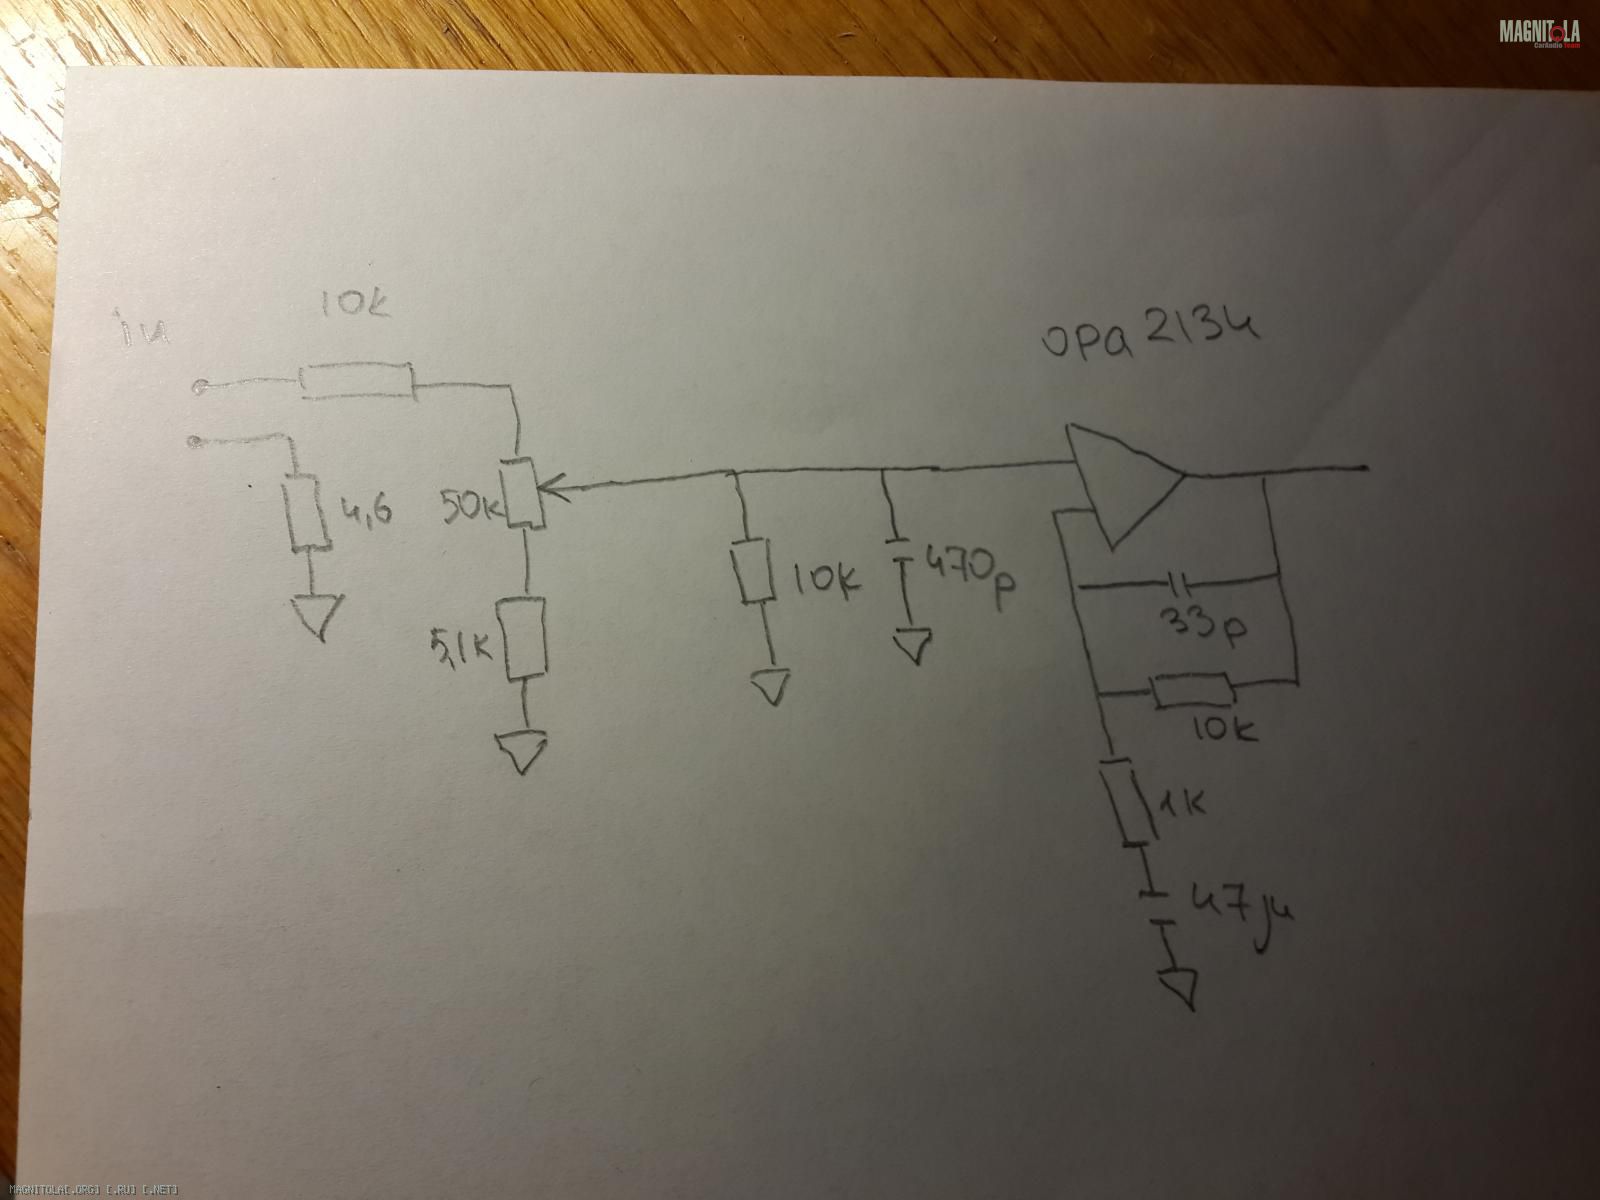 MAGNITOLA
CarAudio Team
in
10k
4,6
50k
5,1k
10k
470p
opa 2134
33p
10k
1k
47µ
MAGNITOLA[.ORG] [.RU] [.NET]